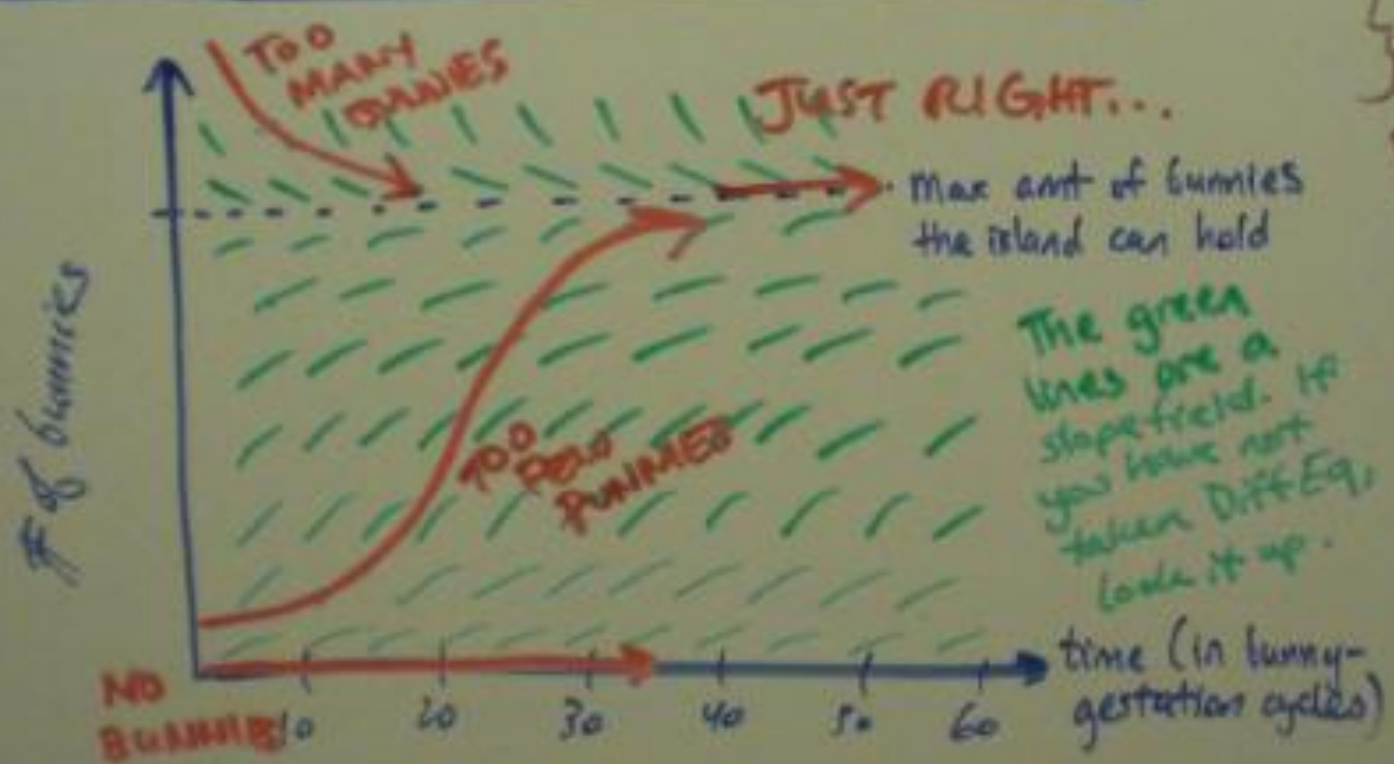 TOO
MANY
BUNNIES
JUST RIGHT...
Max amt of bunnies
the island can hold
# of bunnies
The green
lines are a
slopefield. If
you have not
taken DiffEq,
look it up.
TOO
FEW
BUNNIES
NO
BUNNIES
10 20 30 40 50 60
time (in bunny-
gestation cycles)